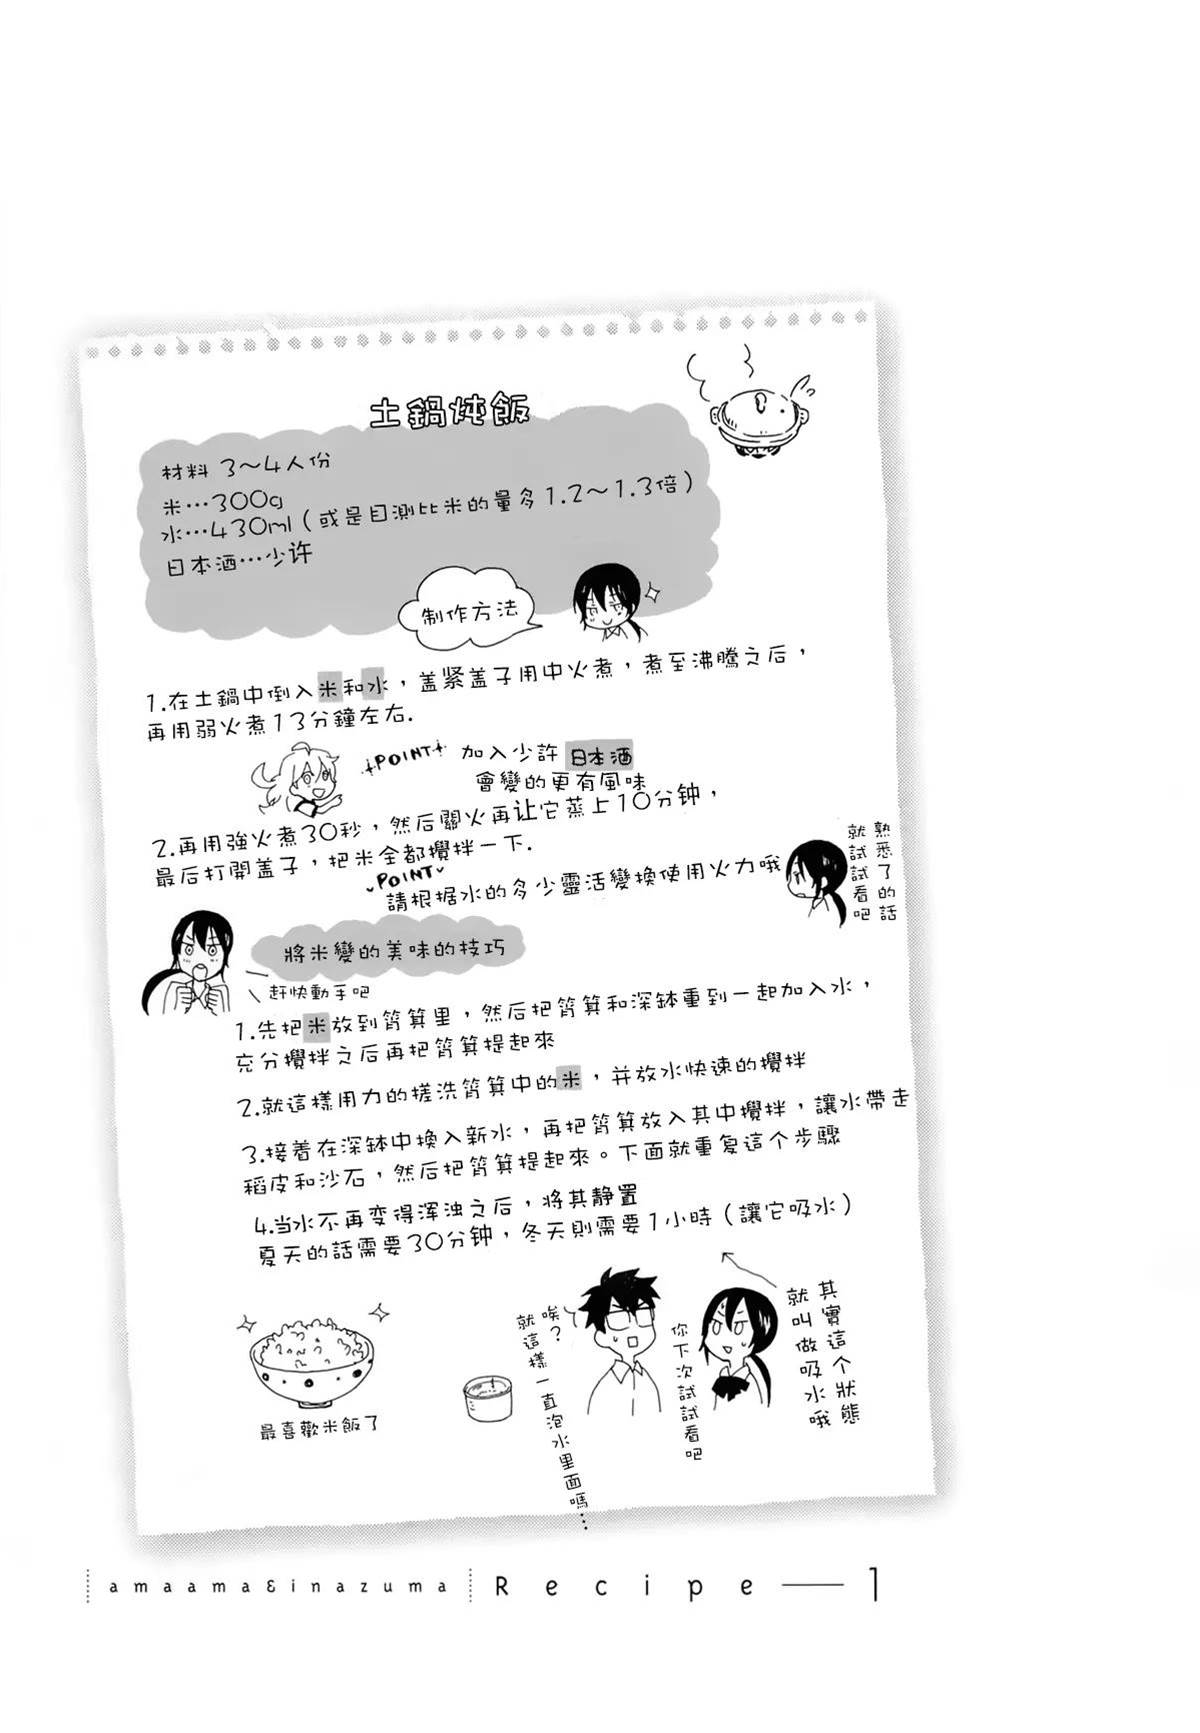 土鍋炖飯
材料 3～4人份
米…300g
水…430ml（或是目測比米的量多1.2～1.3倍）
日本酒…少许
制作方法
1.在土鍋中倒入米和水，盖紧盖子用中火煮，煮至沸騰之后，
再用弱火煮13分鐘左右.
POINT 加入少許 日本酒
會變的更有風味
2.再用強火煮30秒，然后關火再让它蒸上10分钟，
最后打開盖子，把米全都攪拌一下.
POINT
請根据水的多少靈活變換使用火力哦
熟悉了的話
就試試看吧
將米變的美味的技巧
赶快動手吧
1.先把米放到筲箕里，然后把筲箕和深缽重到一起加入水，
充分攪拌之后再把筲箕提起來
2.就這樣用力的搓洗筲箕中的米，并放水快速的攪拌
3.接着在深缽中換入新水，再把筲箕放入其中攪拌，讓水帶走
稻皮和沙石，然后把筲箕提起來。下面就重复這个步驟
4.当水不再变得浑浊之后，將其静置
夏天的話需要30分钟，冬天則需要1小時（讓它吸水）
其實這个狀態
就叫做吸水哦
你下次試試看吧
唉？
就這樣一直泡水里面嗎…
最喜歡米飯了
amaama&inazuma Recipe — 1